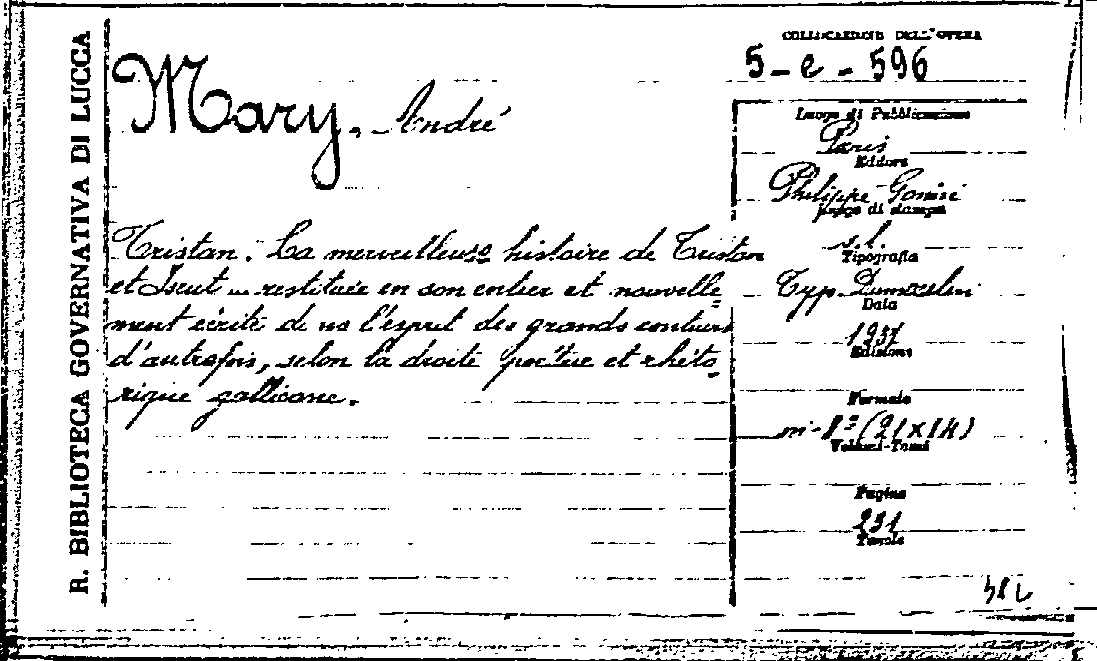 R. BIBLIOTECA GOVERNATIVA DI LUCCA
COLLOCAZIONE DELL'OPERA
5-e-596
Mary. André
Luogo di Pubblicazione
Paris
Editore
Philippe
Luogo di stampa
s.l.
Tipografia
Typ.
Data
1937
Edizione
Formato
in-8º (21x14)
Volumi-Tomi
Pagine
231
Tavole
Tristan. La merveilleuse histoire de Tristan
et Iseut ... restituée en son entier et nouvelle=
ment écrite de l'esprit des grands conteurs
d'autrefois, selon la droite et rhéto=
rique gallicane.